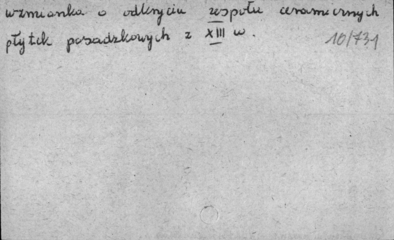 wzmianka o odkryciu zespołu ceramicznych
płytek posadzkowych z XIII w.
10/731